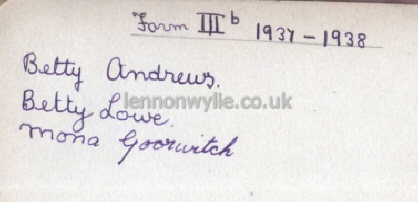 Form III b 1937-1938
Betty Andrews.
Betty Lowe.
Mona Goorwitch
lennonwylie.co.uk